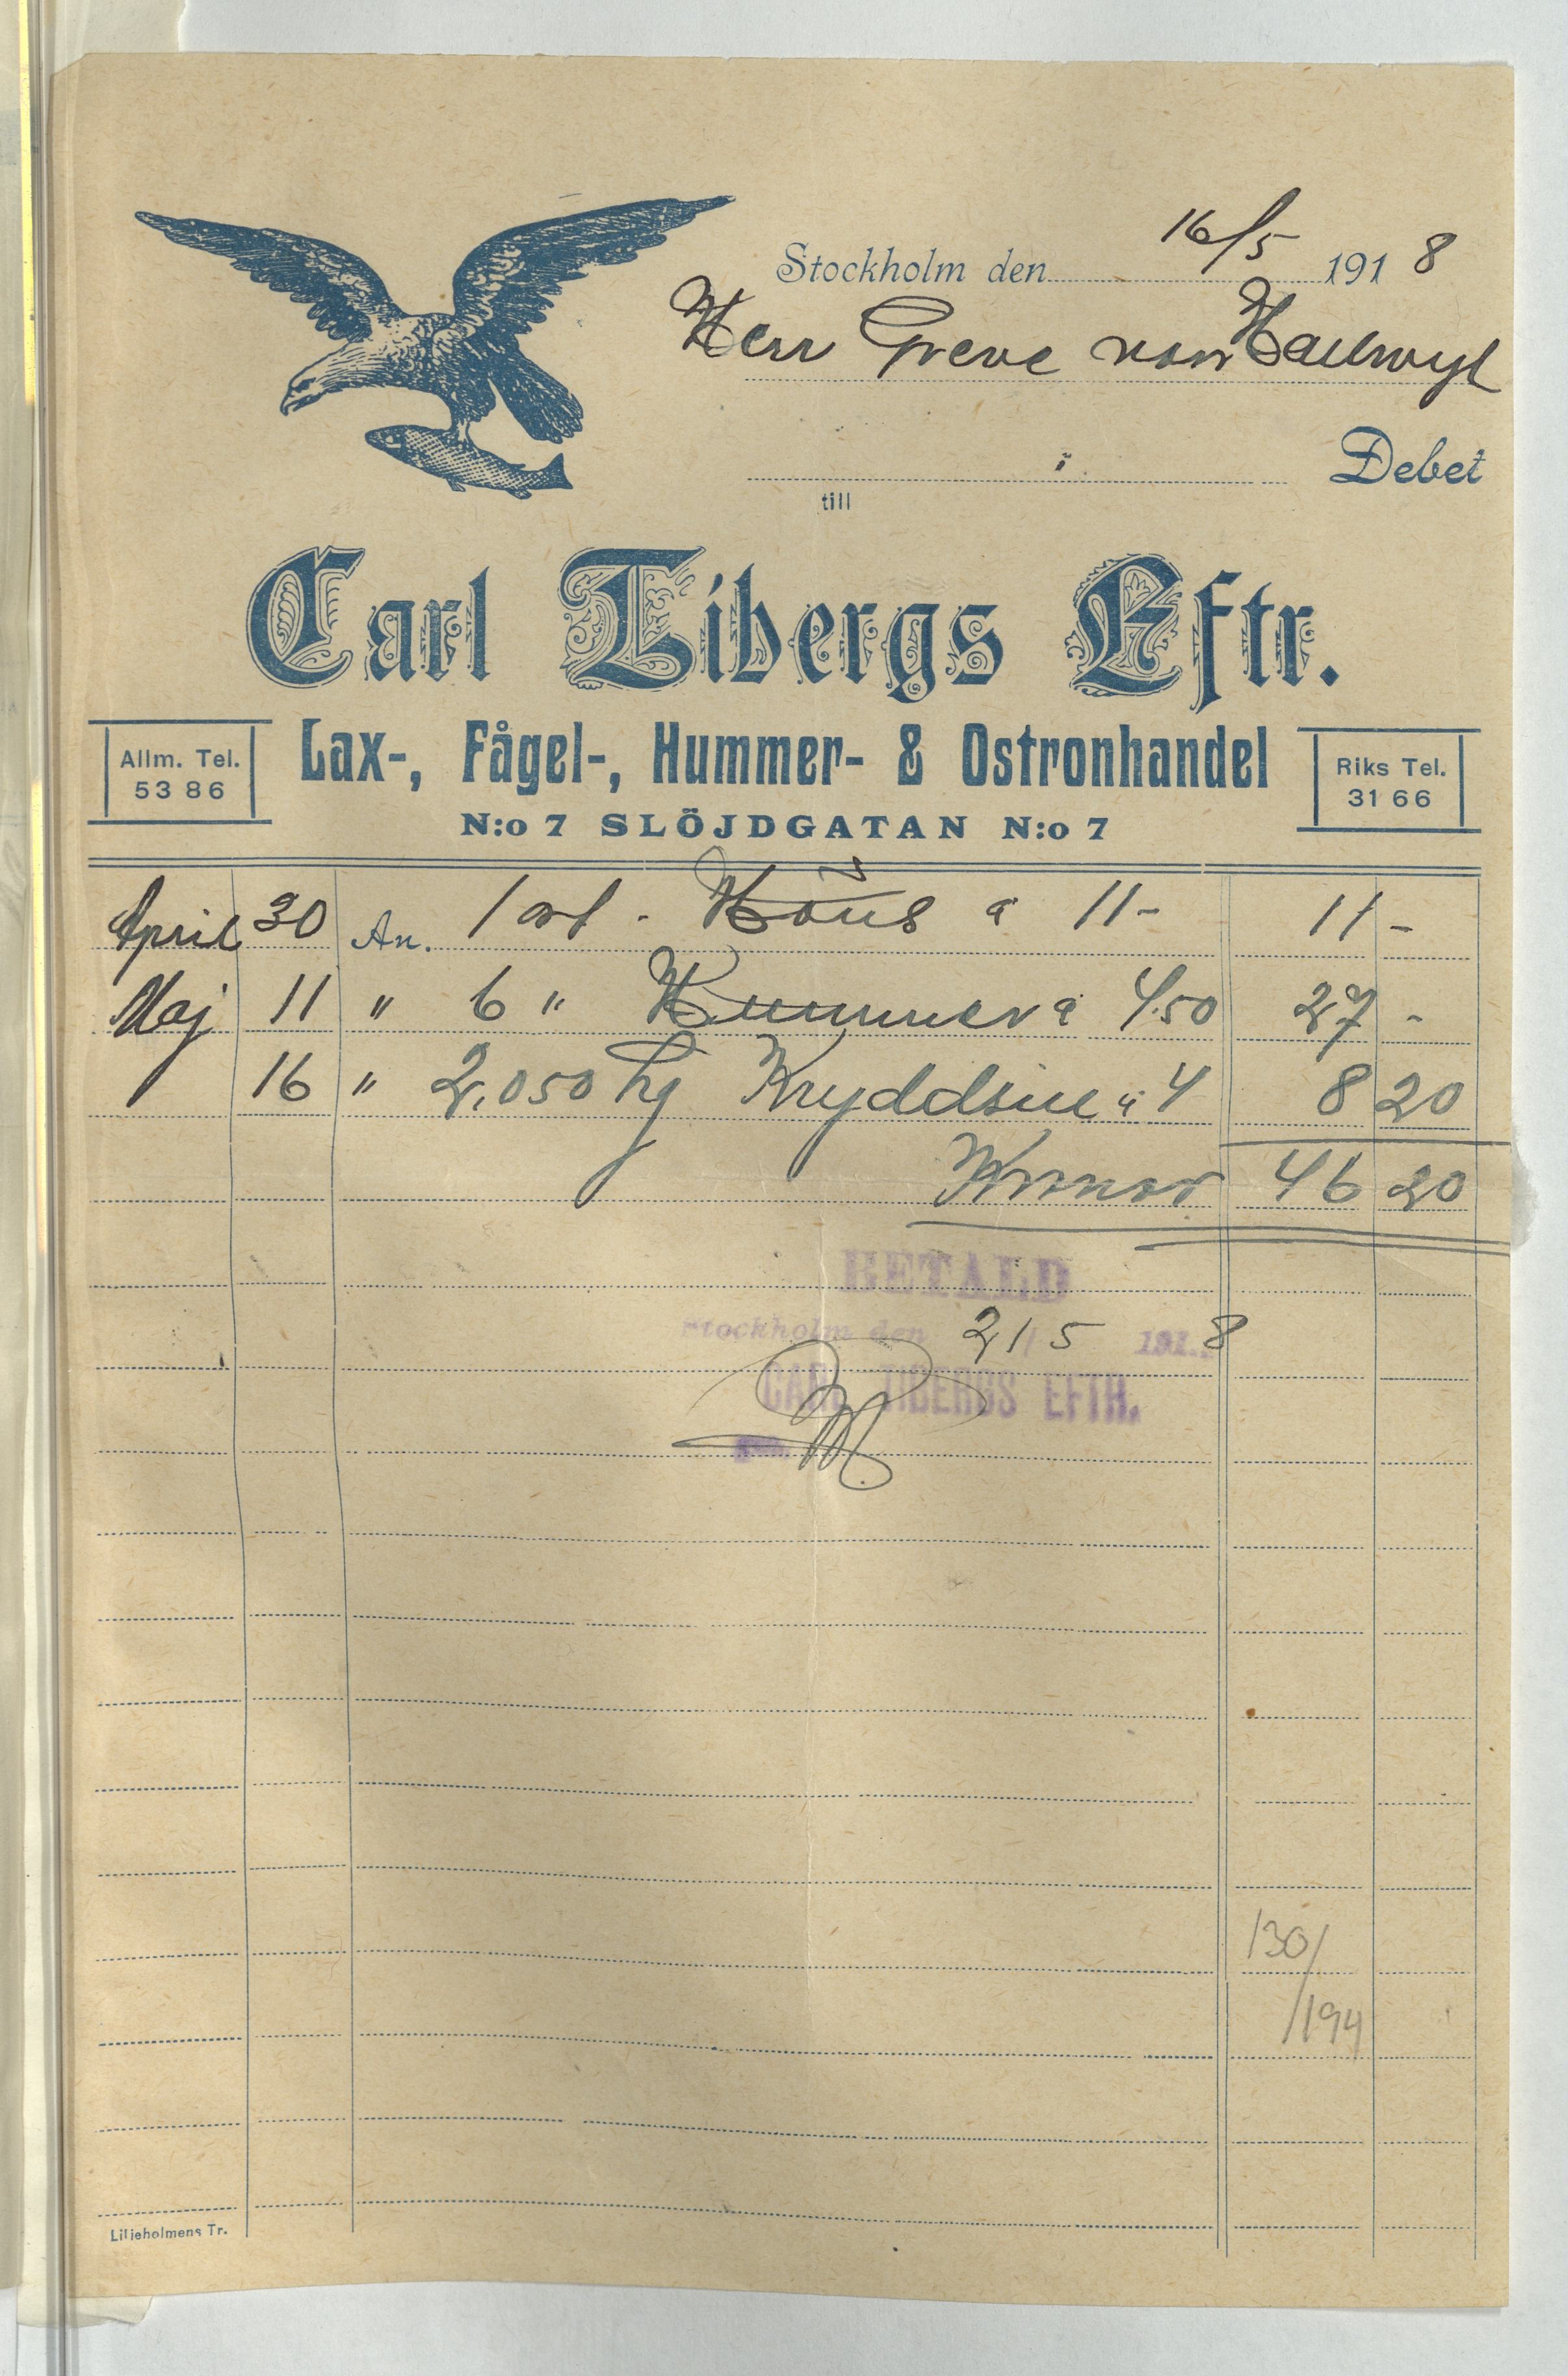 Stockholm den 16/5 1918
Herr Greve von Hallwyl
Debet
till
Carl Tibergs Eftr.
Allm. Tel. 53 86
Lax-, Fågel-, Hummer- & Ostronhandel
Riks Tel. 31 66
N:o 7 SLÖJDGATAN N:o 7
April 30 An. 1 Höns a 11- 11 -
Maj 11 " 6 " Hummer a 4.50 27 -
16 " 2,050 kg Kryddsill a 4 8 20
Kronor 46 20
BETALD
Stockholm den 21/5 1918
CARL TIBERGS EFTR.
130/
/194
Liljeholmens Tr.